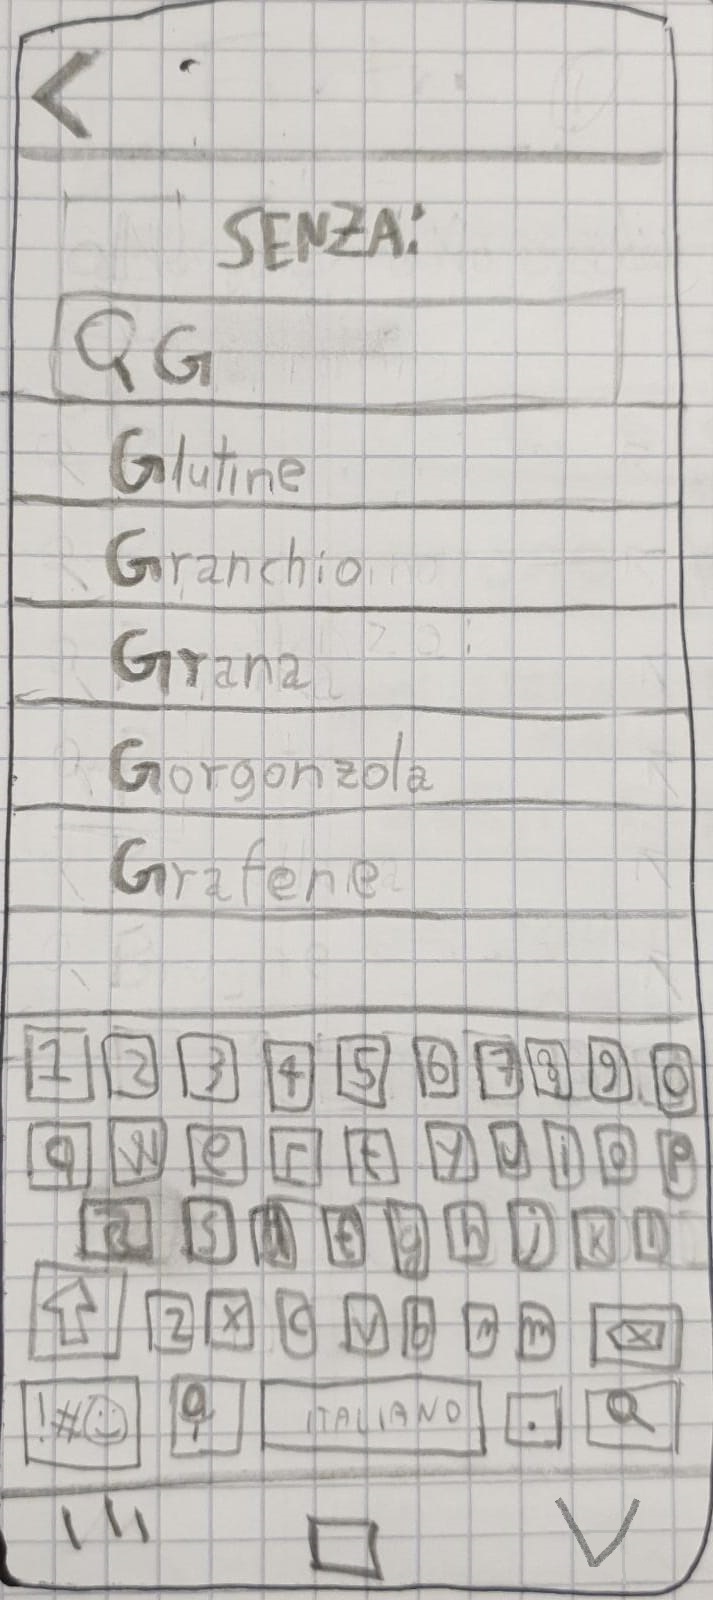 SENZA:
G
Glutine
Granchio
Grana
Gorgonzola
Grafene
1 2 3 4 5 6 7 8 9 0
q w e r t y u i o p
a s d f g h j k l
z x c v b n m
!# ITALIANO .